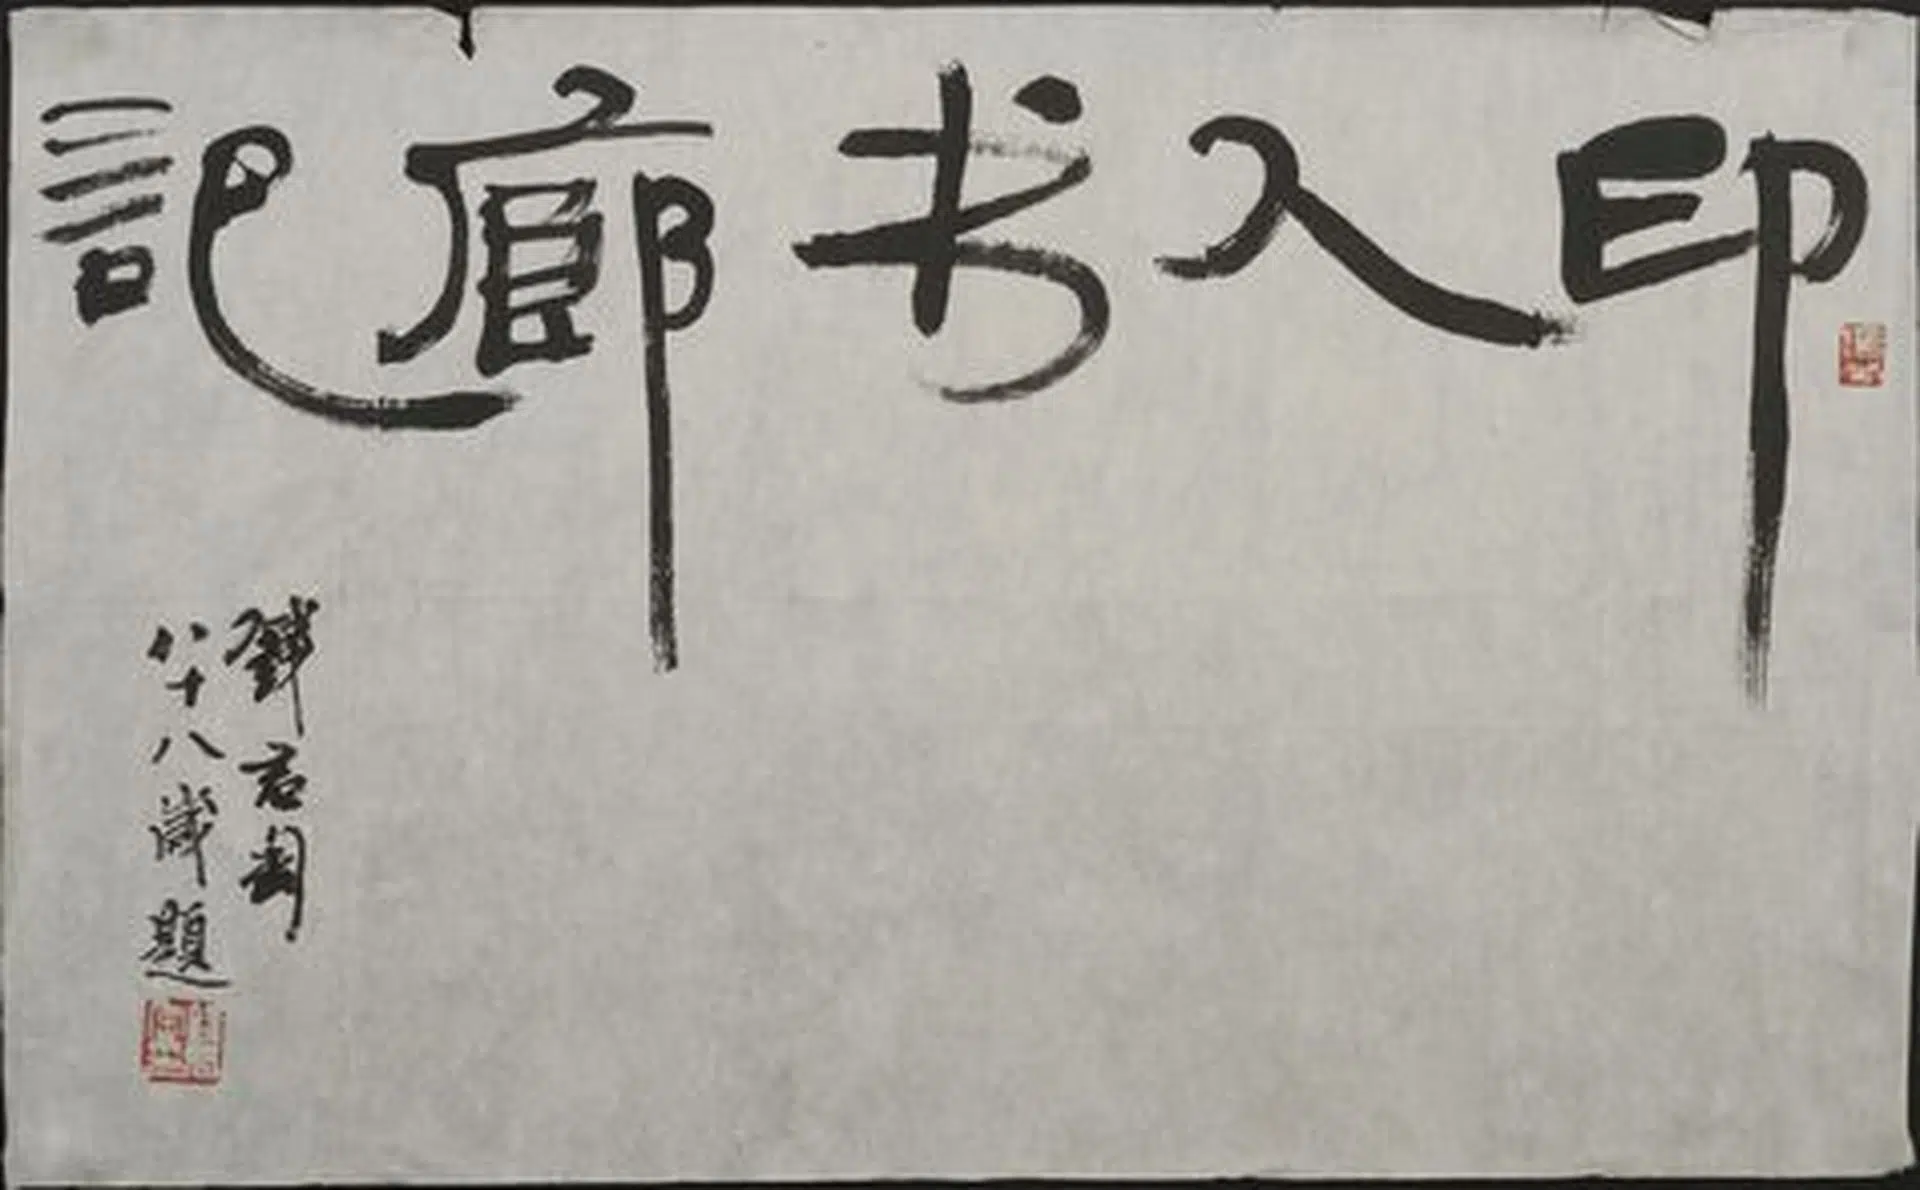 印入书廊記
錢君匋
八十八歲題